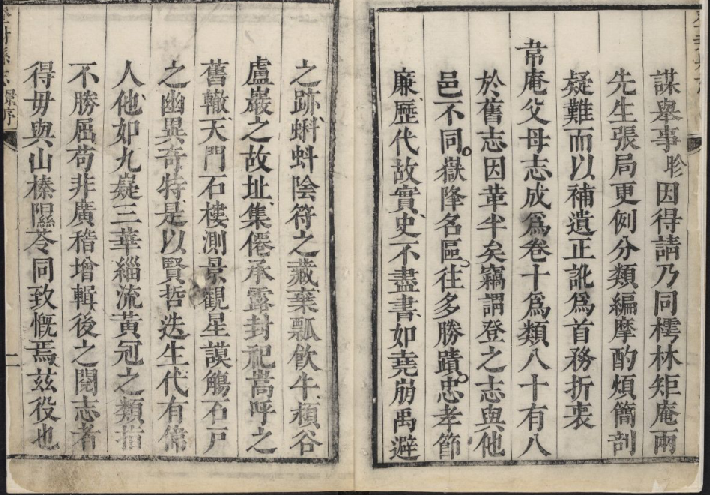 謀舉事聄因得請乃同樗林矩庵兩
先生張局更例分類編摩酌煩簡剖
疑難而以補遺正訛爲首務折衷
常庵父母志成爲卷十爲類八十有八
於舊志因革半矣竊謂登之志與他
邑不同嶽降名區往多勝蹟忠孝節
廉歷代故實史不盡書如堯崩禹避
之跡蝌蚪陰符之藏棄瓢飲牛頴谷
盧巖之故址集僊承露封祀嵩呼之
舊轍天門石樓測景觀星謨觴石戸
之幽異奇特是以賢哲迭生代有偉
人他如九疑三華緇流黃冠之類指
不勝屈苟非廣稽增輯後之閱志者
得毋與山榛隰苓同致慨焉茲役也